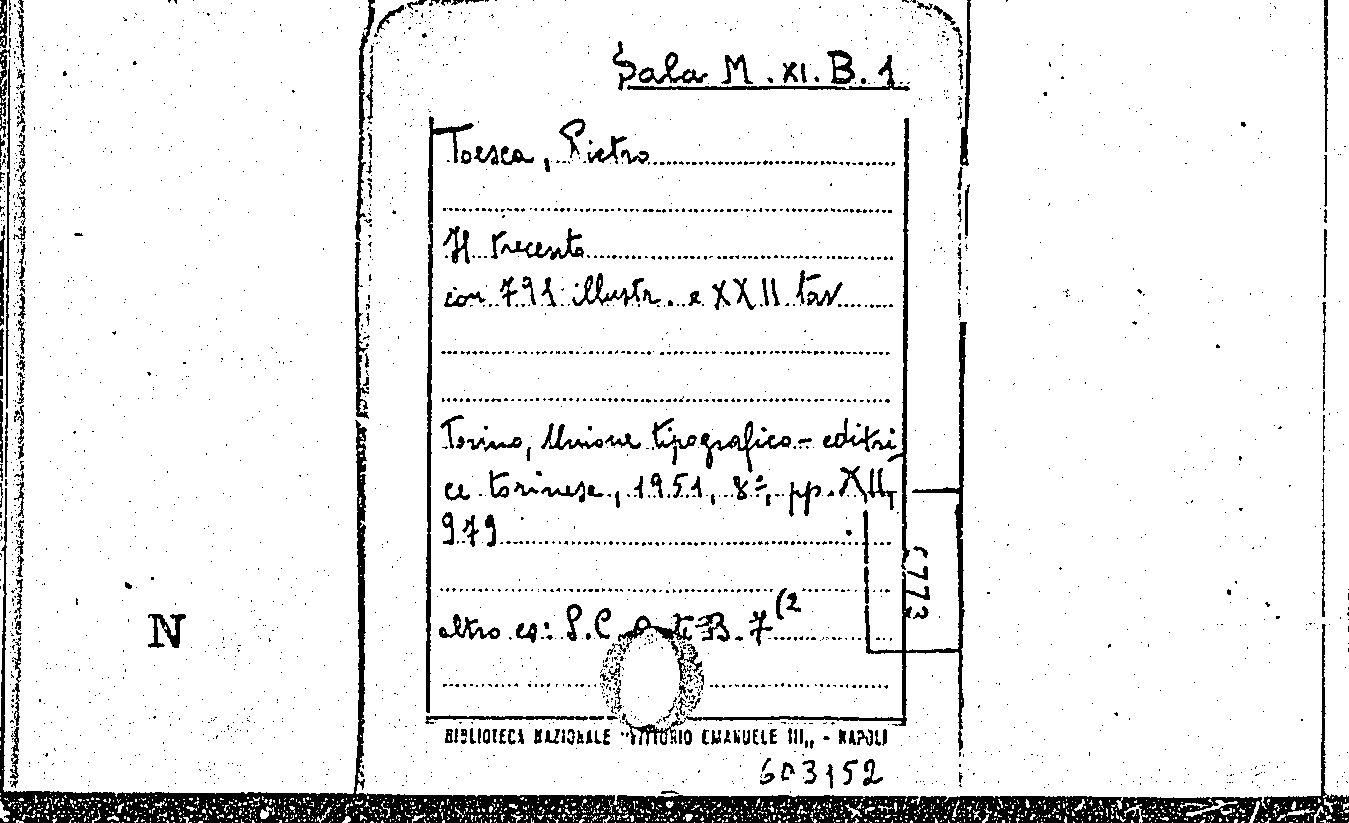 Sala M. XI. B. 1
Toesca, Pietro
Il trecento
con 791 illustr. e XXII tav
Torino, Unione tipografico-editri
ce torinese, 1951, 8º, pp. XII,
979
altro es: S.C. B. 7 (2
6773
N
BIBLIOTECA NAZIONALE "VITTORIO EMANUELE III,, - NAPOLI
603152